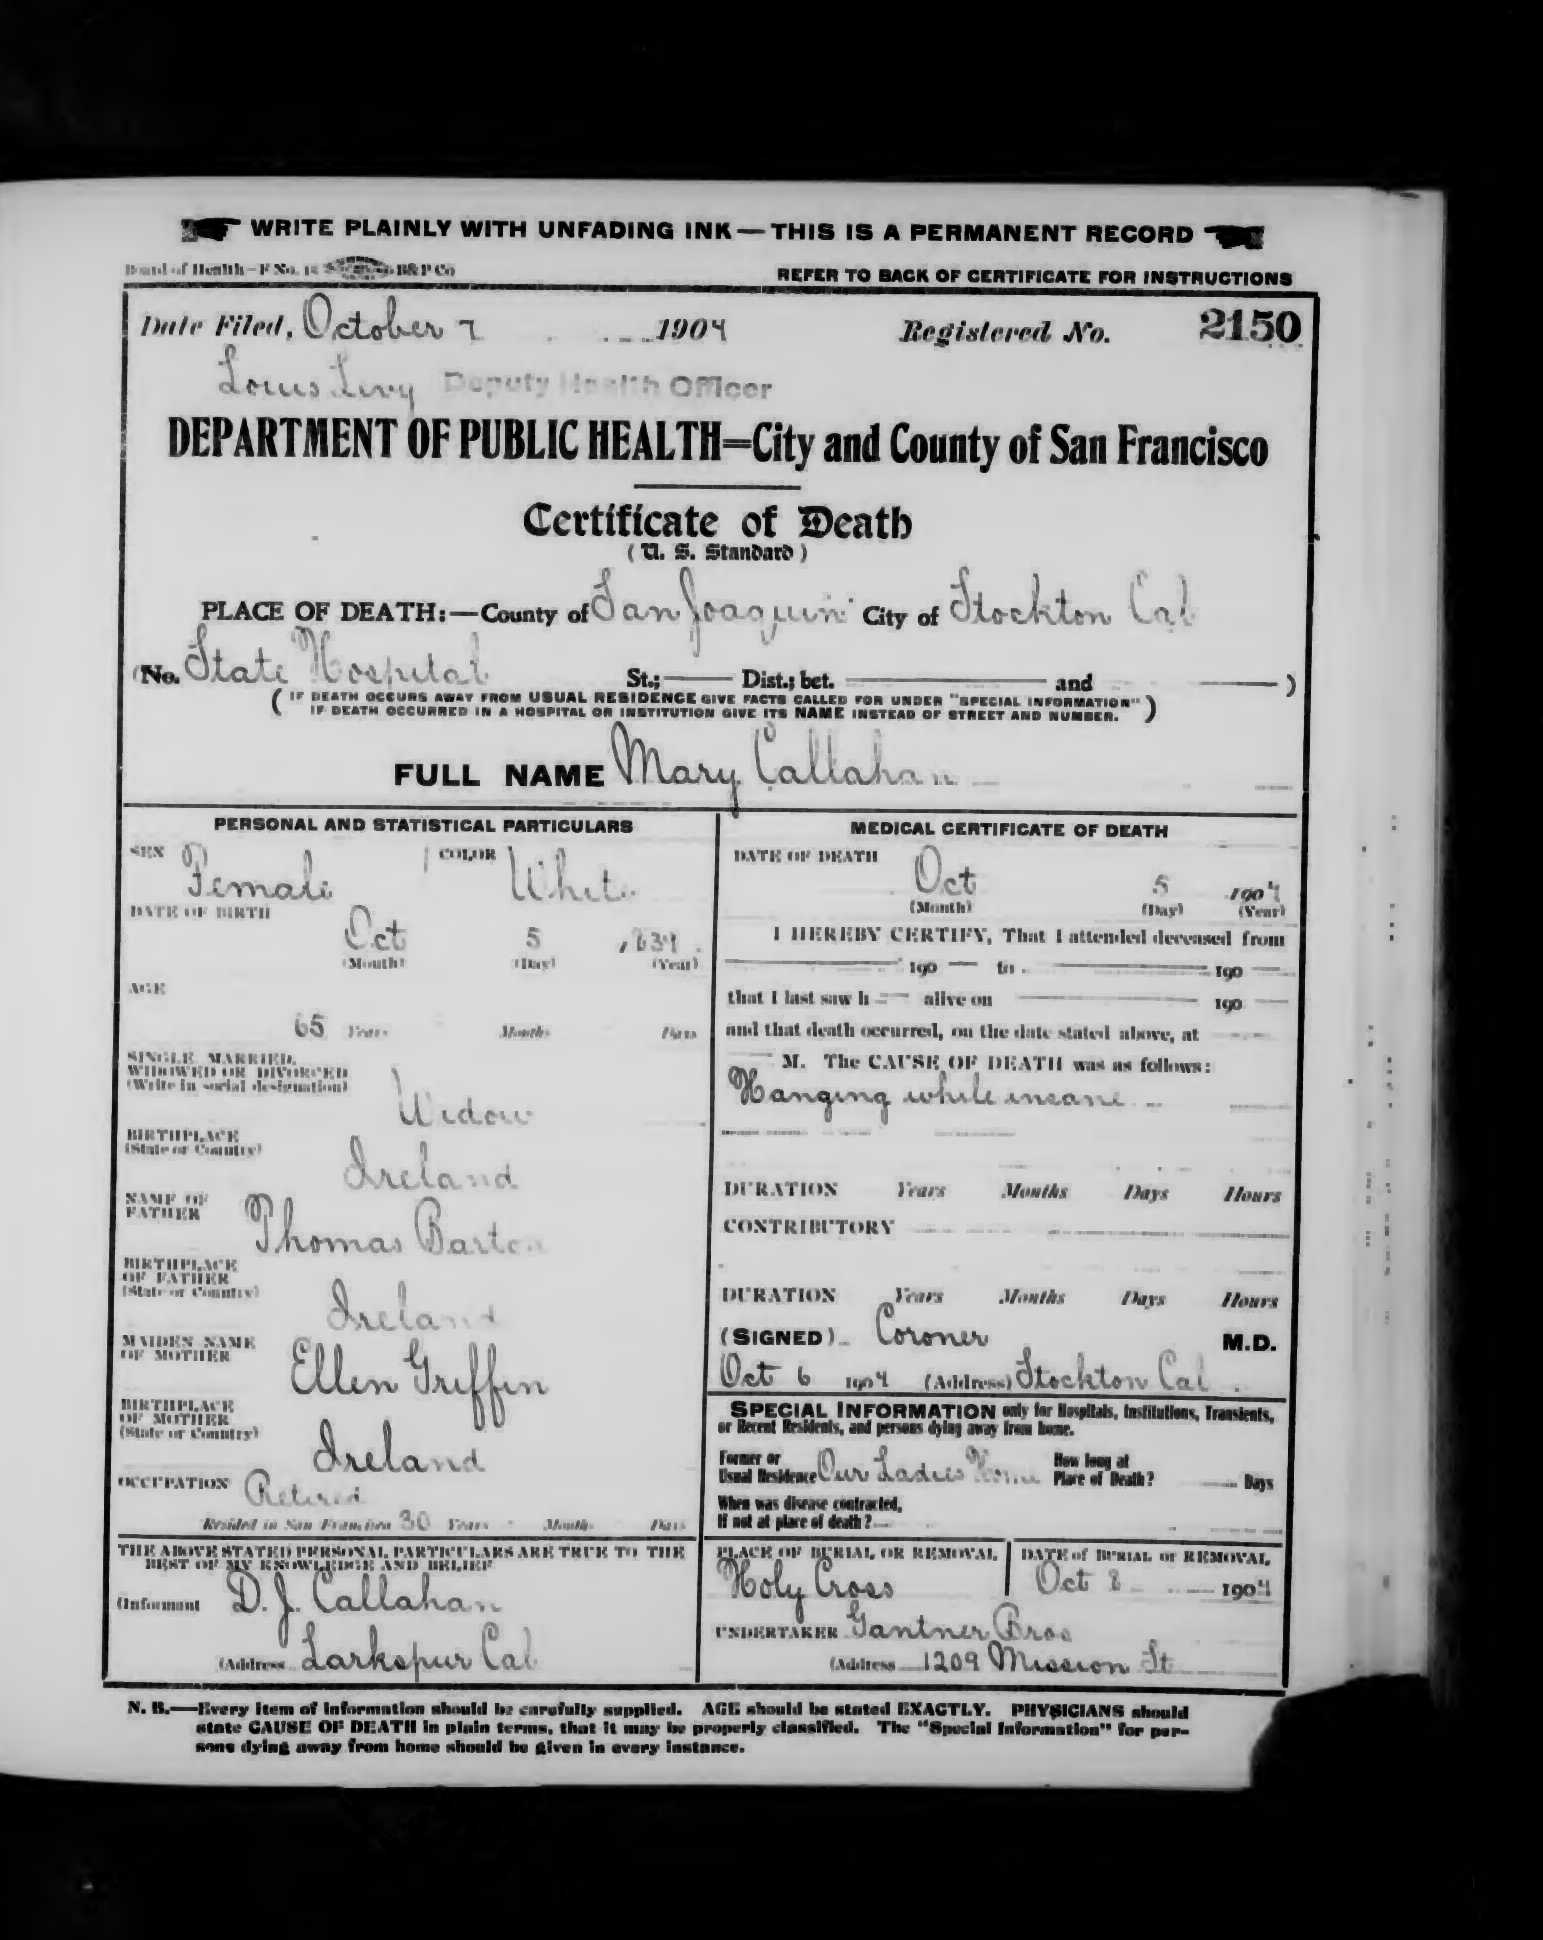 WRITE PLAINLY WITH UNFADING INK — THIS IS A PERMANENT RECORD
Board of Health—F No. B&P Co
REFER TO BACK OF CERTIFICATE FOR INSTRUCTIONS
Date Filed, October 7 1904 Registered No. 2150
Louis Levy Deputy Health Officer
DEPARTMENT OF PUBLIC HEALTH=City and County of San Francisco
Certificate of Death
(U. S. Standard)
PLACE OF DEATH:—County of San Joaquin City of Stockton Cal
(No. State Hospital St.; —— Dist.; bet. —— and —— )
(IF DEATH OCCURS AWAY FROM USUAL RESIDENCE GIVE FACTS CALLED FOR UNDER "SPECIAL INFORMATION"
IF DEATH OCCURRED IN A HOSPITAL OR INSTITUTION GIVE ITS NAME INSTEAD OF STREET AND NUMBER.)
FULL NAME Mary Callahan
PERSONAL AND STATISTICAL PARTICULARS
SEX Female COLOR White
DATE OF BIRTH
Oct 5 , 839
(Month) (Day) (Year)
AGE
65 Years Months Days
SINGLE, MARRIED,
WIDOWED OR DIVORCED
(Write in social designation)
Widow
BIRTHPLACE
(State or Country)
Ireland
NAME OF
FATHER
Thomas Barton
BIRTHPLACE
OF FATHER
(State or Country)
Ireland
MAIDEN NAME
OF MOTHER
Ellen Griffin
BIRTHPLACE
OF MOTHER
(State or Country)
Ireland
OCCUPATION Retired
Resided in San Francisco 30 Years Months Days
THE ABOVE STATED PERSONAL PARTICULARS ARE TRUE TO THE
BEST OF MY KNOWLEDGE AND BELIEF
(Informant D. J. Callahan
(Address Larkspur Cal
MEDICAL CERTIFICATE OF DEATH
DATE OF DEATH
Oct 5 1904
(Month) (Day) (Year)
I HEREBY CERTIFY, That I attended deceased from
—— 190 — to —— 190 —
that I last saw h — alive on —— 190 —
and that death occurred, on the date stated above, at ——
— M. The CAUSE OF DEATH was as follows:
Hanging while insane
DURATION Years Months Days Hours
CONTRIBUTORY
DURATION Years Months Days Hours
(SIGNED) Coroner M.D.
Oct 6 1904 (Address) Stockton Cal
SPECIAL INFORMATION only for Hospitals, Institutions, Transients,
or Recent Residents, and persons dying away from home.
Former or
Usual Residence Our Ladies Home
How long at
Place of Death? Days
When was disease contracted,
If not at place of death?
PLACE OF BURIAL OR REMOVAL
Holy Cross
DATE of BURIAL or REMOVAL
Oct 8 1904
UNDERTAKER Gantner Bros
(Address 1209 Mission St
N. B.—Every item of information should be carefully supplied. AGE should be stated EXACTLY. PHYSICIANS should
state CAUSE OF DEATH in plain terms, that it may be properly classified. The "Special Information" for per-
sons dying away from home should be given in every instance.